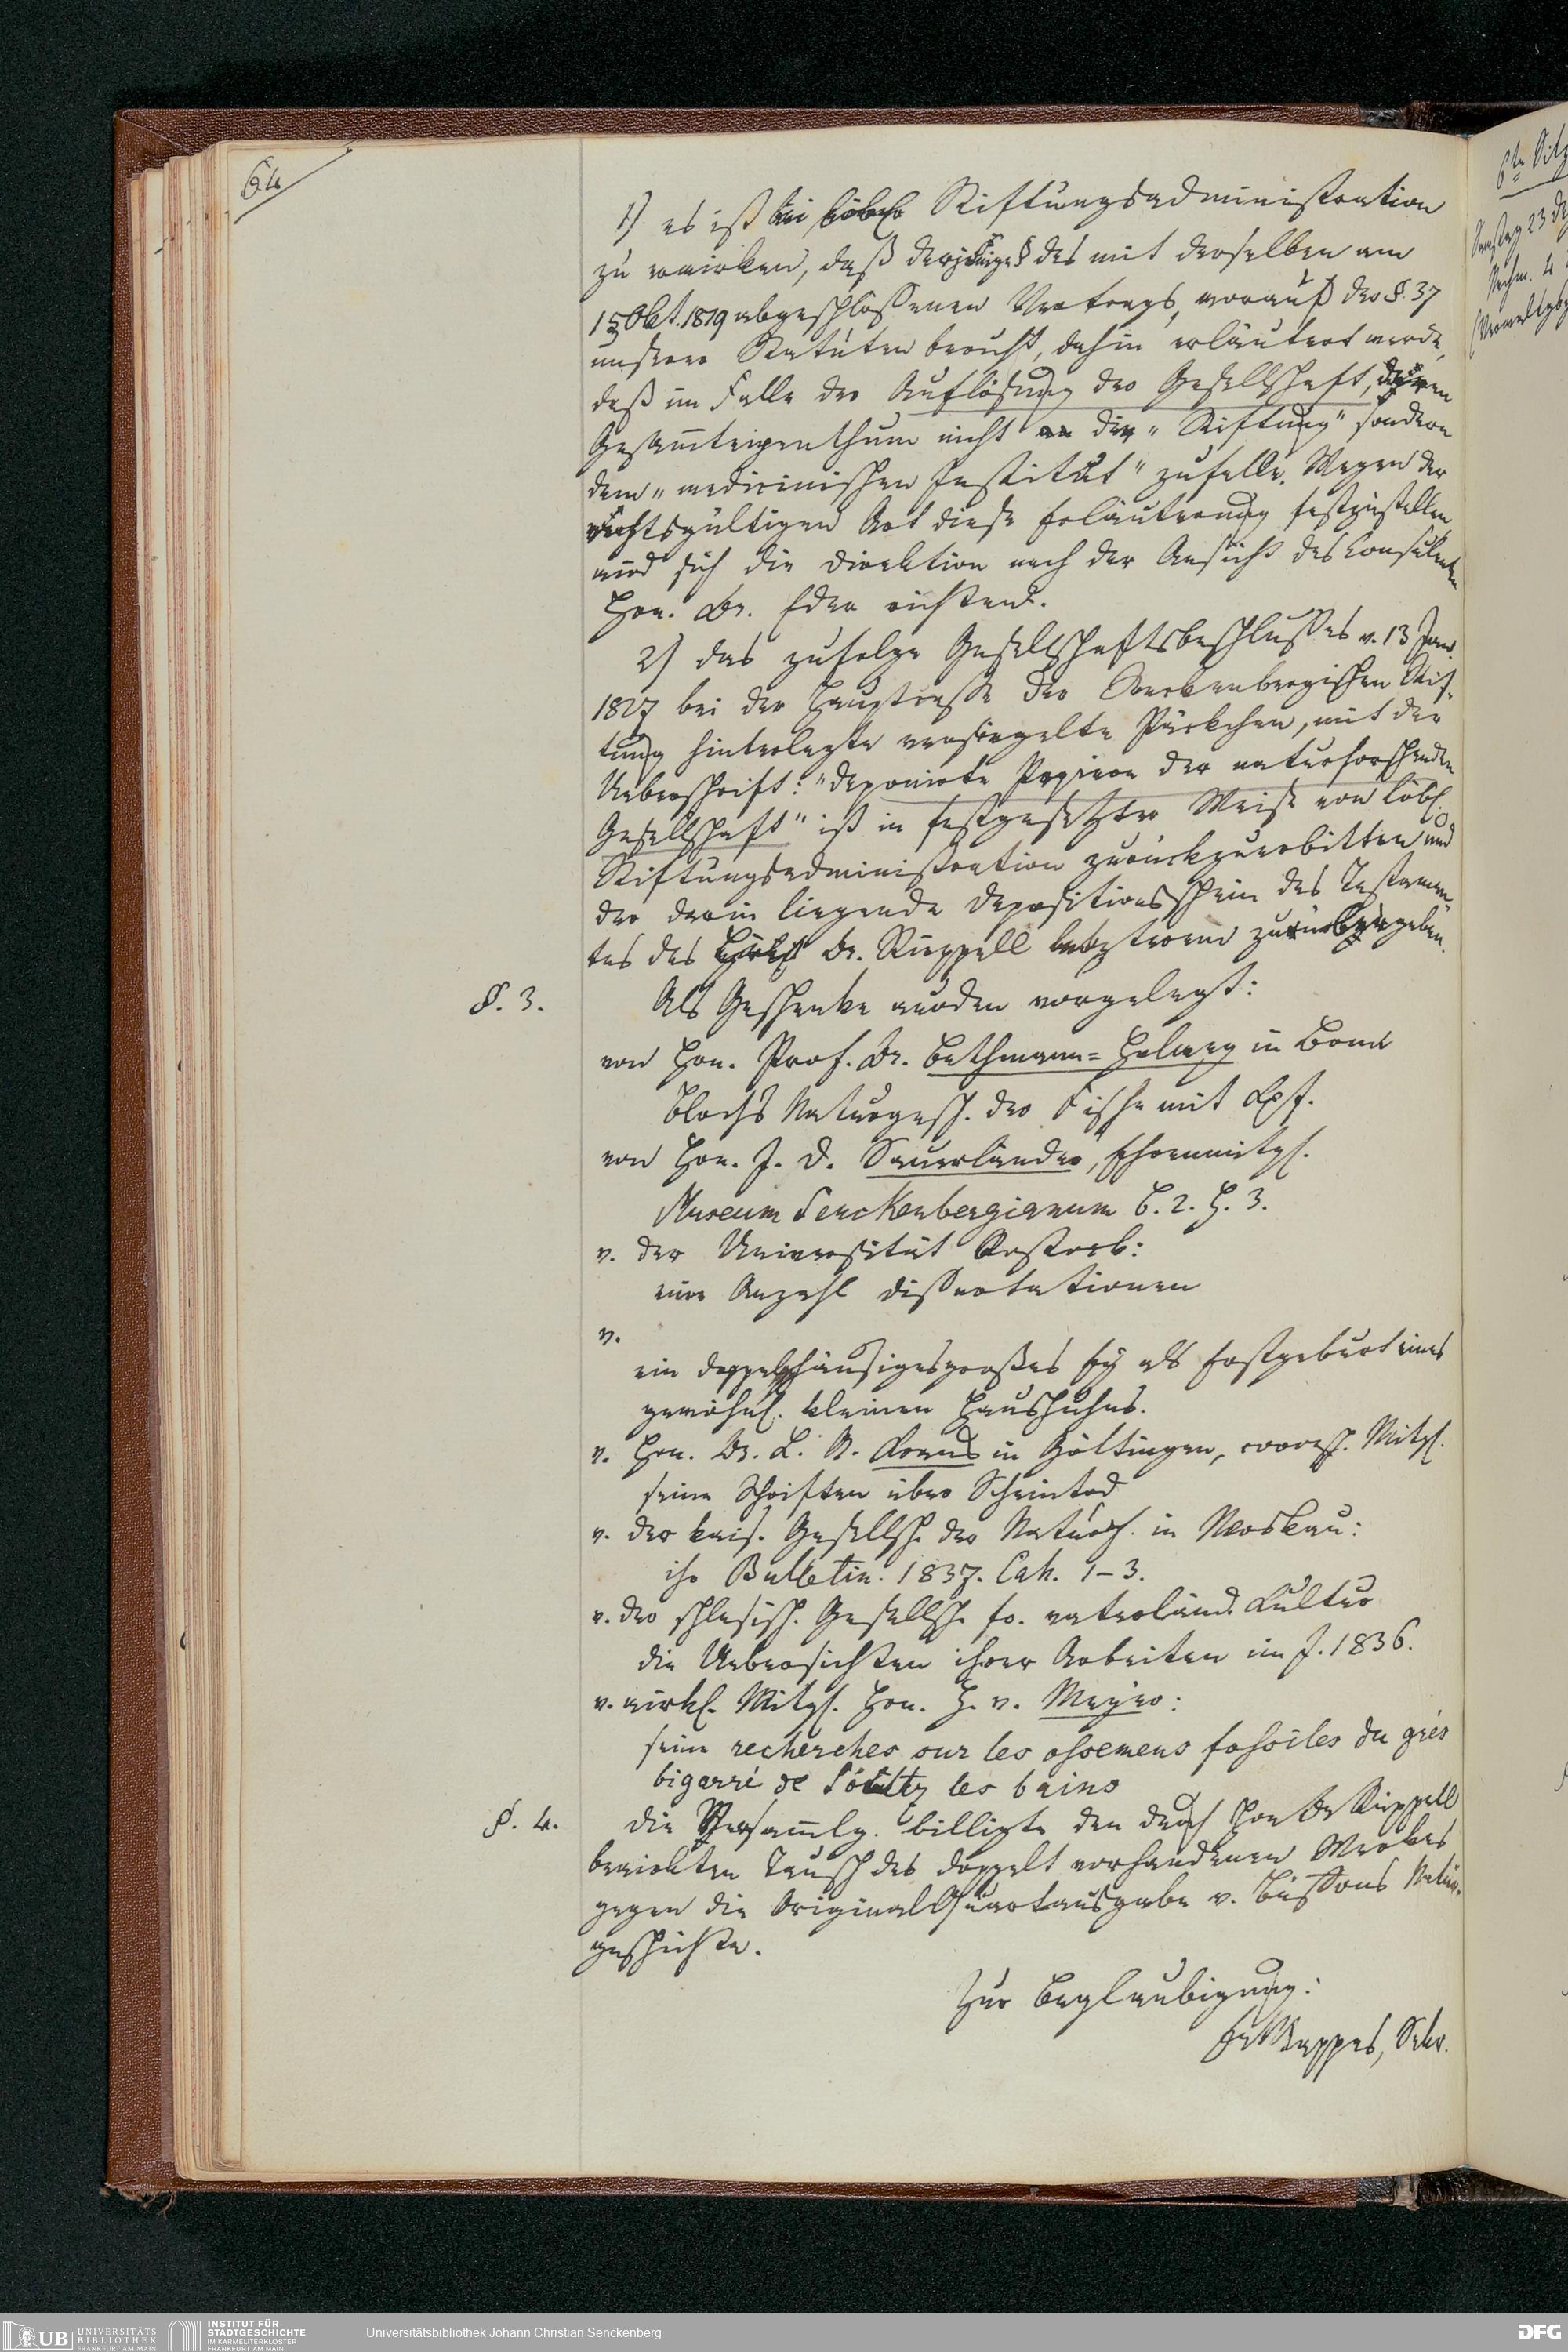 64
1) es ist bei löbl. Stiftungsadministration
zu erwirken, daß derjenige § des mit derselben am
15 Okt. 1819 abgeschlossenen Vertrags, worauf der §. 37
unserer Statuten beruht, dahin erläutert werde,
daß im Falle der Auflösung der Gesellschaft, deren
Gesam̄teigenthum nicht an die „Stiftung" sondern
dem „medicinischen Institut" zufalle. Wegen der
rechtsgültigen Art diese Erläuterung festzustellen
wird sich die Direktion nach der Ansicht des Consulenten
Hrn. Dr. Eder richten.
2) das zufolge Gesellschaftsbeschlusses v. 13 Jan.
1827 bei der Hauptcasse der Senckenbergischen Stif-
tung hinterlegte versiegelte Päckchen, mit der
Ueberschrift: „deponirte Papiere der naturforschenden
Gesellschaft" ist in festgesetzter Weise von löbl.
Stiftungsadministration zurückzuerbitten und
der darin liegende Depositionsschein des Testamen-
tes des Dr. Rüppell letzterem zurückzugeben.
§. 3.
Als Geschenke wurden vorgelegt:
von Hrn. Prof. Dr. Bethmann=Holweg in Bonn
Bloch's Naturgesch. der Fische mit Kpf.
von Hrn. J. D. Sauerländer, Ehrenmitgl.
Museum Senckenbergianum B. 2. H. 3.
v. der Universität Rostock:
eine Anzahl Dissertationen
v.
ein doppelhäusiges großes Ey als Erstgeburt eines
gewöhnl. kleinen Haushuhns.
v. Hrn. Dr. L. A. Kraus in Göttingen, corresp. Mitgl.
seine Schriften über Scheintod
v. der kais. Gesellsch. der Naturf. in Moskau:
ihr Bulletin. 1837. Cah. 1–3.
v. der schlesisch. Gesellsch. fr. vaterländ. Kultur
die Uebersichten ihrer Arbeiten im J. 1836.
v. wirkl. Mitgl. Hrn. H. v. Meyer:
seine recherches sur les ossemens fossiles du grès
bigarré de Soultz les bains
§. 4.
Die Versam̄lg. billigte den durch Hrn Dr Rüppell
bewirkten Tausch des doppelt vorhandenen Werkes
gegen die Original Quartausgabe v. Büffons Natur-
geschichte.
Zur Beglaubigung:
Dr Kappes, Sekr.
6te Sitz
Samstag 23 De
Nachm. 4
UB UNIVERSITÄTS
BIBLIOTHEK
FRANKFURT AM MAIN
INSTITUT FÜR
STADTGESCHICHTE
IM KARMELITERKLOSTER
FRANKFURT AM MAIN
Universitätsbibliothek Johann Christian Senckenberg
DFG